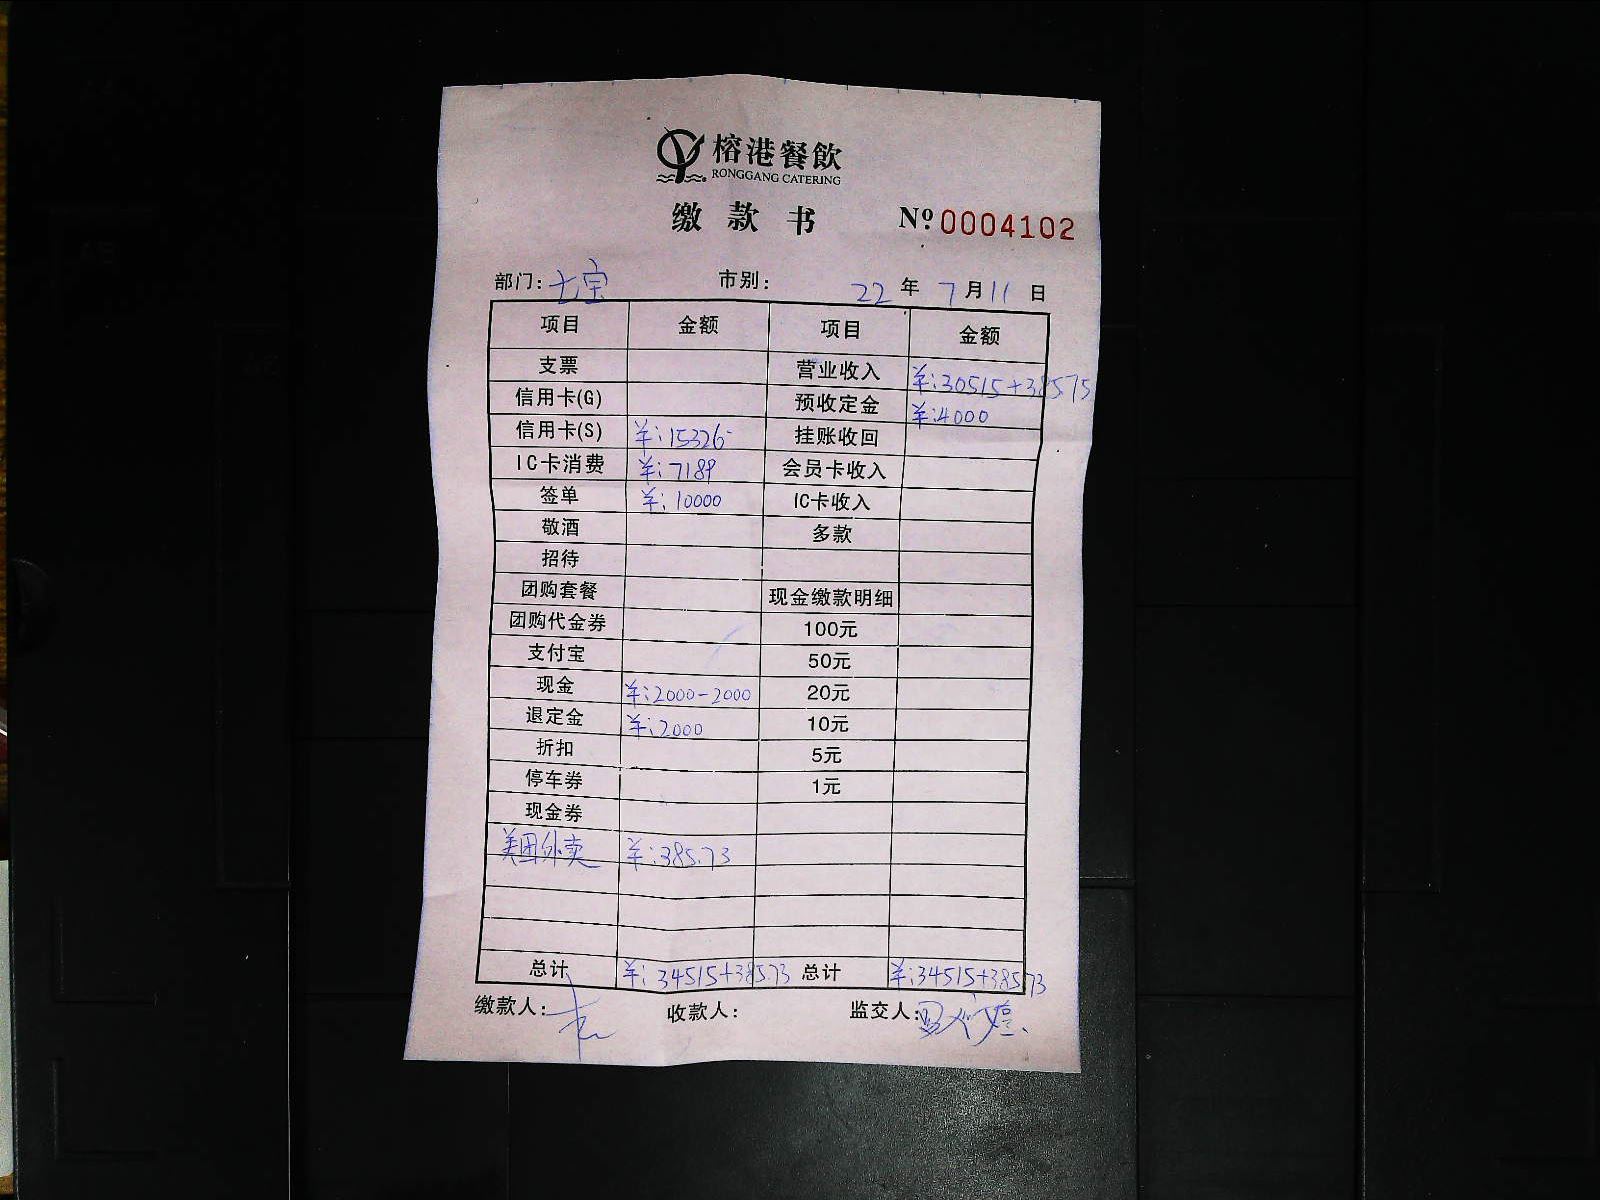 榕港餐飲
RONGGANG CATERING
缴款书 Nº 0004102
部门: 七宝 市别: 22 年 7 月 11 日
项目 金额 项目 金额
支票 营业收入 ¥:30515+38575
信用卡(G) 预收定金 ¥:4000
信用卡(S) ¥:15326- 挂账收回
IC卡消费 ¥:7189 会员卡收入
签单 ¥:10000 IC卡收入
敬酒 多款
招待
团购套餐 现金缴款明细
团购代金券 100元
支付宝 50元
现金 ¥:2000-2000 20元
退定金 ¥:2000 10元
折扣 5元
停车券 1元
现金券
美团外卖 ¥:385.73
总计 ¥:34515+385.73 总计 ¥:34515+385.73
缴款人: 收款人: 监交人: